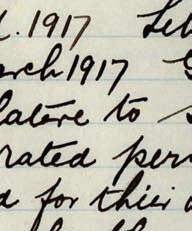 . 1917
arch 1917
latere to
rated per
d for thier